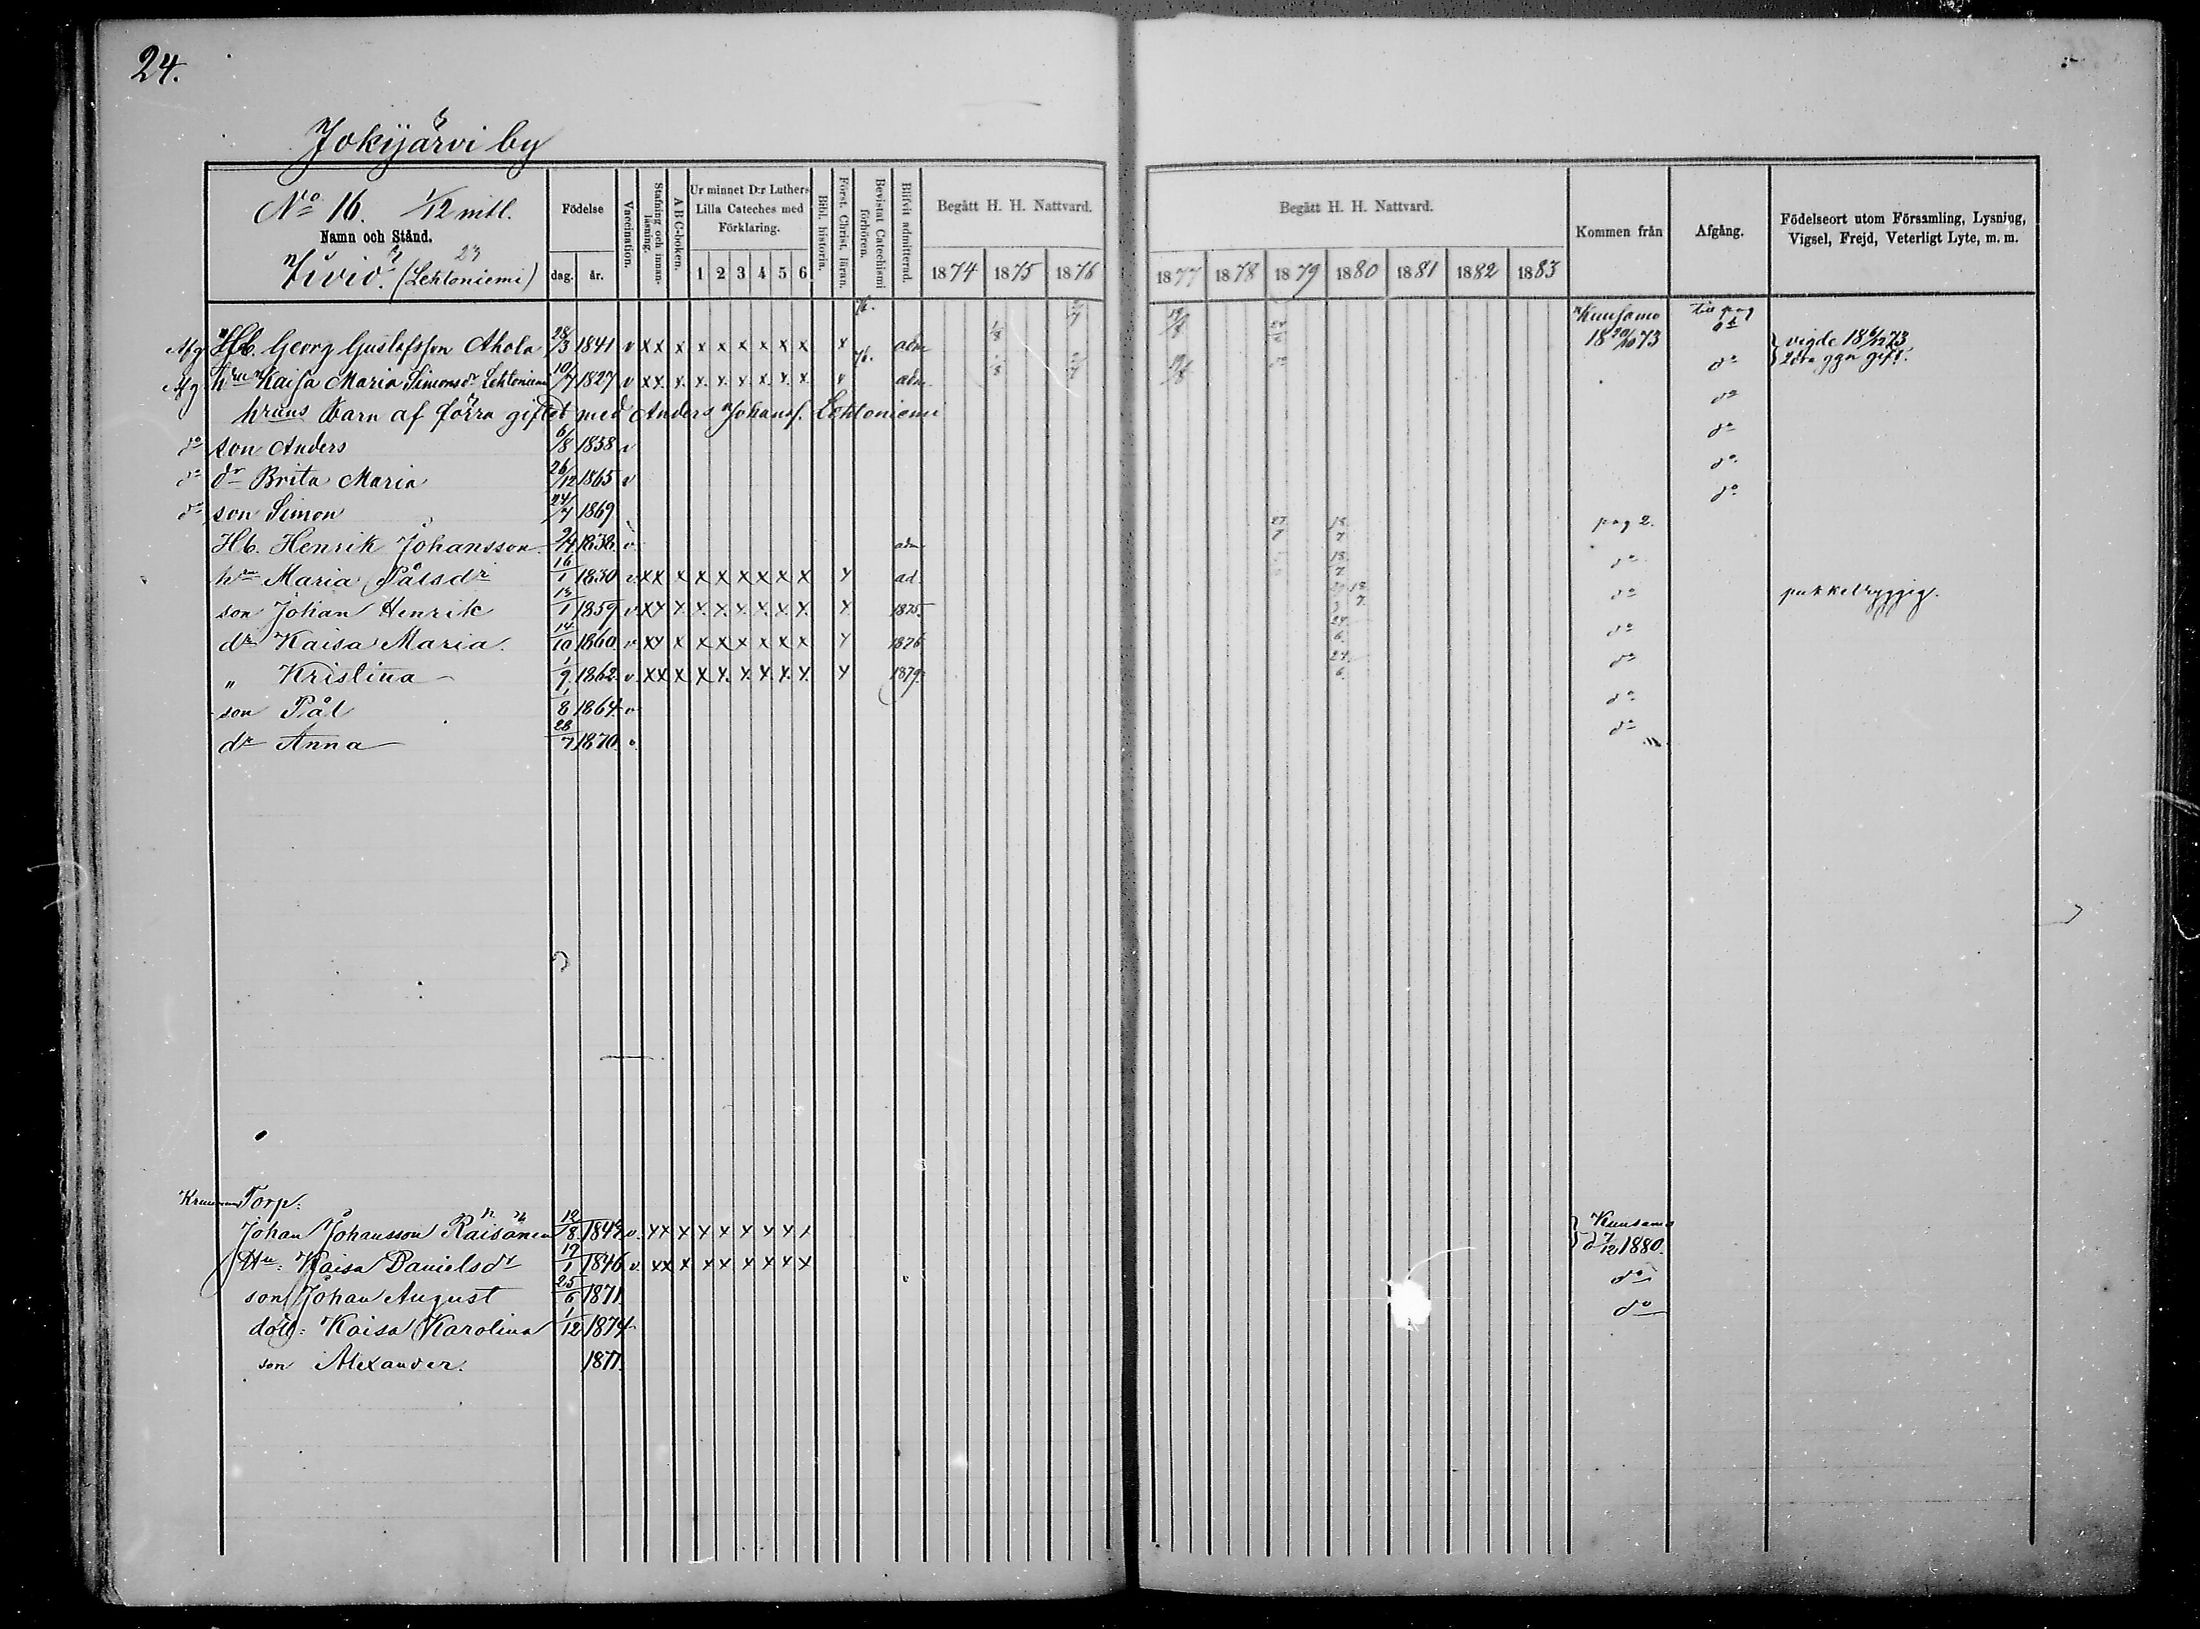 24.
Jokijärvi by
No 16. 1/12 mtl.
Namn och Stånd.
(Lehtoniemi) 23
Födelse
dag. år.
Vaccination.
Stafning och innanläsning.
A B C-boken.
Ur minnet D:r Luthers Lilla Cateches med Förklaring.
1 2 3 4 5 6
Bibl. historia.
Först. Christ. läran.
Bevistat Catechismi förhören.
Blifvit admitterad.
Begått H. H. Nattvard.
1874 1875 1876
Begått H. H. Nattvard.
1877 1878 1879 1880 1881 1882 1883
Kommen från
Afgång.
Födelseort utom Församling, Lysning, Vigsel, Frejd, Veterligt Lyte, m. m.
Afg Hb. Georg Gustafsson Ahola 28/3 1841 v xx x x x x x x x x adm 1/8 Kuusamo 18 20/10 73 till pag vigde 18 6/12 73
Afg hru Kaisa Maria Simonsdr Lehtoniemi 10/7 1827 v xx x x x x x x x v adm do 2dra ggn gift.
hruns barn af förra giftet med Anders Johanss. Lehtoniemi do
do son Anders 6/8 1858 v do
do dr Brita Maria 26/12 1865 v do
do son Simon 24/7 1869 do
Hb. Henrik Johansson 2/4 1838 v adm 27/7 18/7 pag 2.
hru Maria Pålsdr 16/1 1830 v xx x x x x x x x x ad. 18/7 do
son Johan Henrik 13/1 1859 v xx x x x x x x x x 1875 18/7 do pukkelryggig.
dr Kaisa Maria. 14/10 1860 v xx x x x x x x x x 1876 24/6 do
" Kristina 1/9 1862 v xx x x x x x x x x 1879 24/6 do
son Pål 1/8 1864 v do
dr Anna 28/7 1870 v do
Torp:
Johan Johansson Räisänen 12/8 1849 v. xx x x x x x x x Kuusamo d 7/12 1880.
Hu: Kaisa Danielsdr 19/1 1846 v. xx x x x x x x x
son Johan August 25/6 1871 do
dott: Kaisa Karolina 1/12 1874 do
son Alexander. 1877.